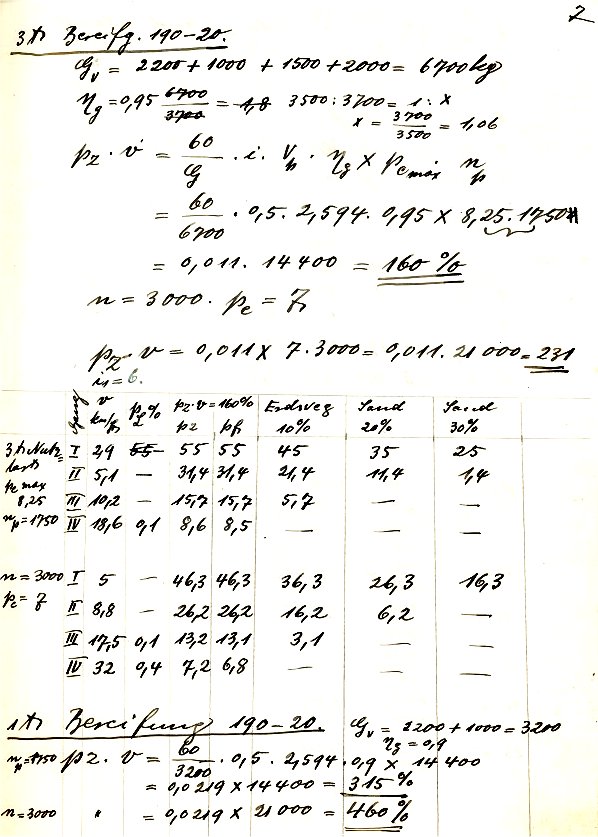 2
3 to Bereifg. 190-20.
Gv = 2200 + 1000 + 1500 + 2000 = 6700 kg
ηg = 0,95 6700/3700 = 1,8 3500 : 3700 = 1 : x
x = 3700/3500 = 1,06
pz · v = 60/G · i · Vh · ηg × pe max np
= 60/6700 · 0,5 · 2,594 · 0,95 × 8,25 · 1750
= 0,011 · 14400 = 160 %
n = 3000 · pe = 7
pz · v = 0,011 × 7 · 3000 = 0,011 · 21000 = 231
is = 6.
Gang v km/h pl % pz·v = 160% pz pf Erdweg 10% Sand 20% Sand 30%
3 to Nutz= I 2,9 55 - 55 55 45 35 25
last II 5,1 — 31,4 31,4 21,4 11,4 1,4
pe max
8,25 III 10,2 — 15,7 15,7 5,7 — —
np = 1750 IV 18,6 0,1 8,6 8,5 — — —
n = 3000 I 5 — 46,3 46,3 36,3 26,3 16,3
pe = 7 II 8,8 — 26,2 26,2 16,2 6,2 —
III 17,5 0,1 13,2 13,1 3,1 — —
IV 32 0,4 7,2 6,8 — — —
1 to Bereifung 190-20. Gv = 2200 + 1000 = 3200
ηg = 0,9
np = 1750 pz · v = 60/3200 · 0,5 · 2,594 · 0,9 × 14400
= 0,0219 × 14400 = 315 %
n = 3000 " = 0,0219 × 21000 = 460 %